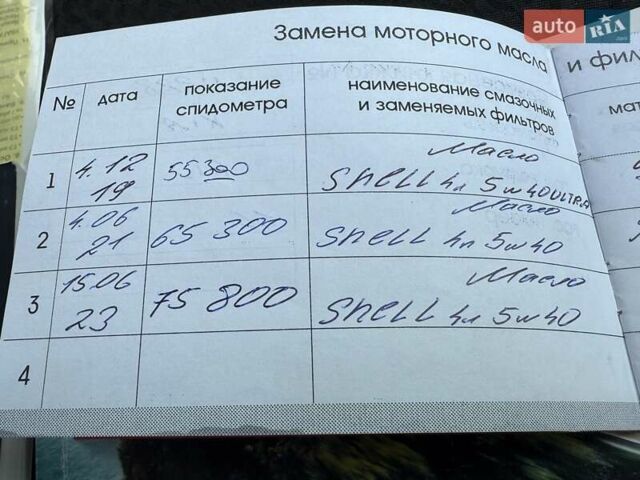 auto RIA
Замена моторного масла
и фил
№
дата
показание
спидометра
наименование смазочных
и заменяемых фильтров
мат
1
4.12
19
55300
Масло
Shell 4л 5w40 ULTRA
2
4.06
21
65300
Масло
Shell 4л 5w40
3
15.06
23
75800
Масло
Shell 4л 5w40
4